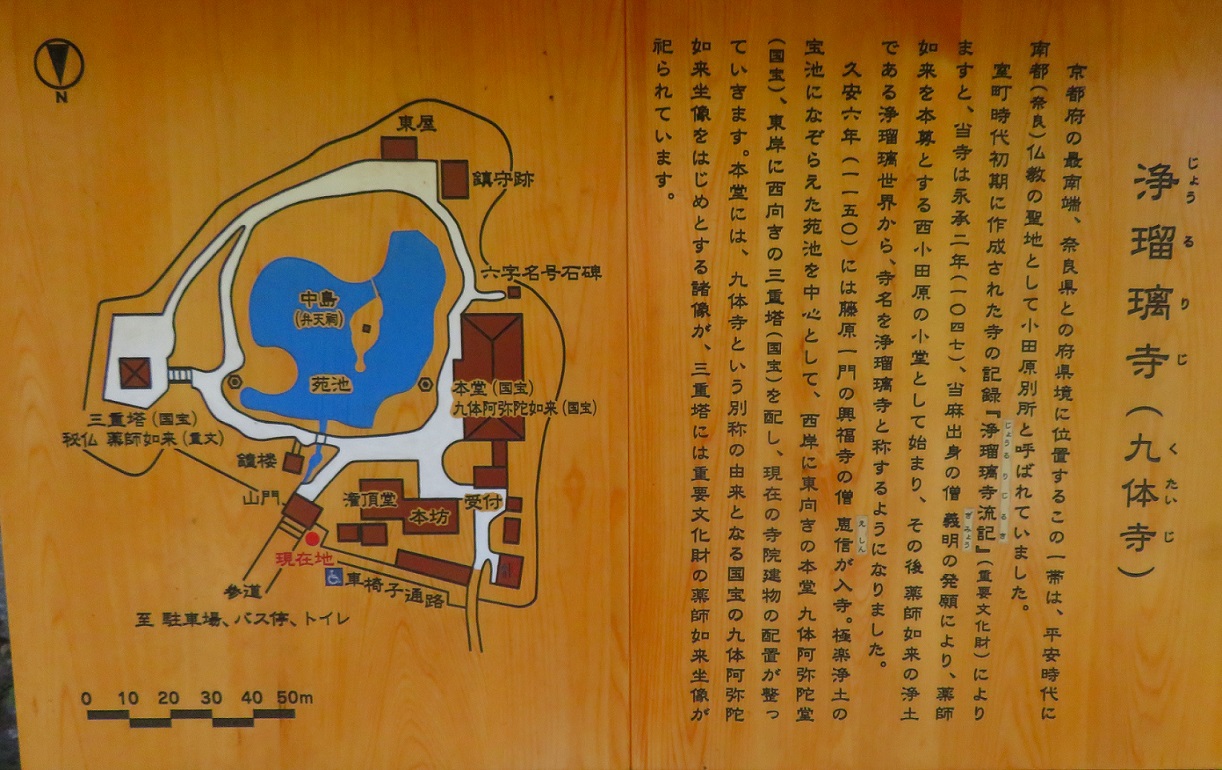 浄瑠璃寺(九体寺)
じょう る り じ
くたいじ
京都府の最南端、奈良県との府県境に位置するこの一帯は、平安時代に
南都(奈良)仏教の聖地として小田原別所と呼ばれていました。
室町時代初期に作成された寺の記録『浄瑠璃寺流記』(重要文化財)により
じょうるりじるき
ますと、当寺は永承二年(一〇四七)、当麻出身の僧 義明の発願により、薬師
ぎみょう
如来を本尊とする西小田原の小堂として始まり、その後 薬師如来の浄土
である浄瑠璃世界から、寺名を浄瑠璃寺と称するようになりました。
久安六年(一一五〇)には藤原一門の興福寺の僧 恵信が入寺。極楽浄土の
えしん
宝池になぞらえた苑池を中心として、西岸に東向きの本堂 九体阿弥陀堂
(国宝)、東岸に西向きの三重塔(国宝)を配し、現在の寺院建物の配置が整っ
ていきます。本堂には、九体寺という別称の由来となる国宝の九体阿弥陀
如来坐像をはじめとする諸像が、三重塔には重要文化財の薬師如来坐像が
祀られています。
N
東屋
鎮守跡
六字名号石碑
中島
(弁天祠)
苑池
本堂(国宝)
九体阿弥陀如来(国宝)
三重塔(国宝)
秘仏 薬師如来(重文)
鐘楼
山門
灌頂堂
本坊
受付
現在地
車椅子通路
参道
至 駐車場、バス停、トイレ
0 10 20 30 40 50m